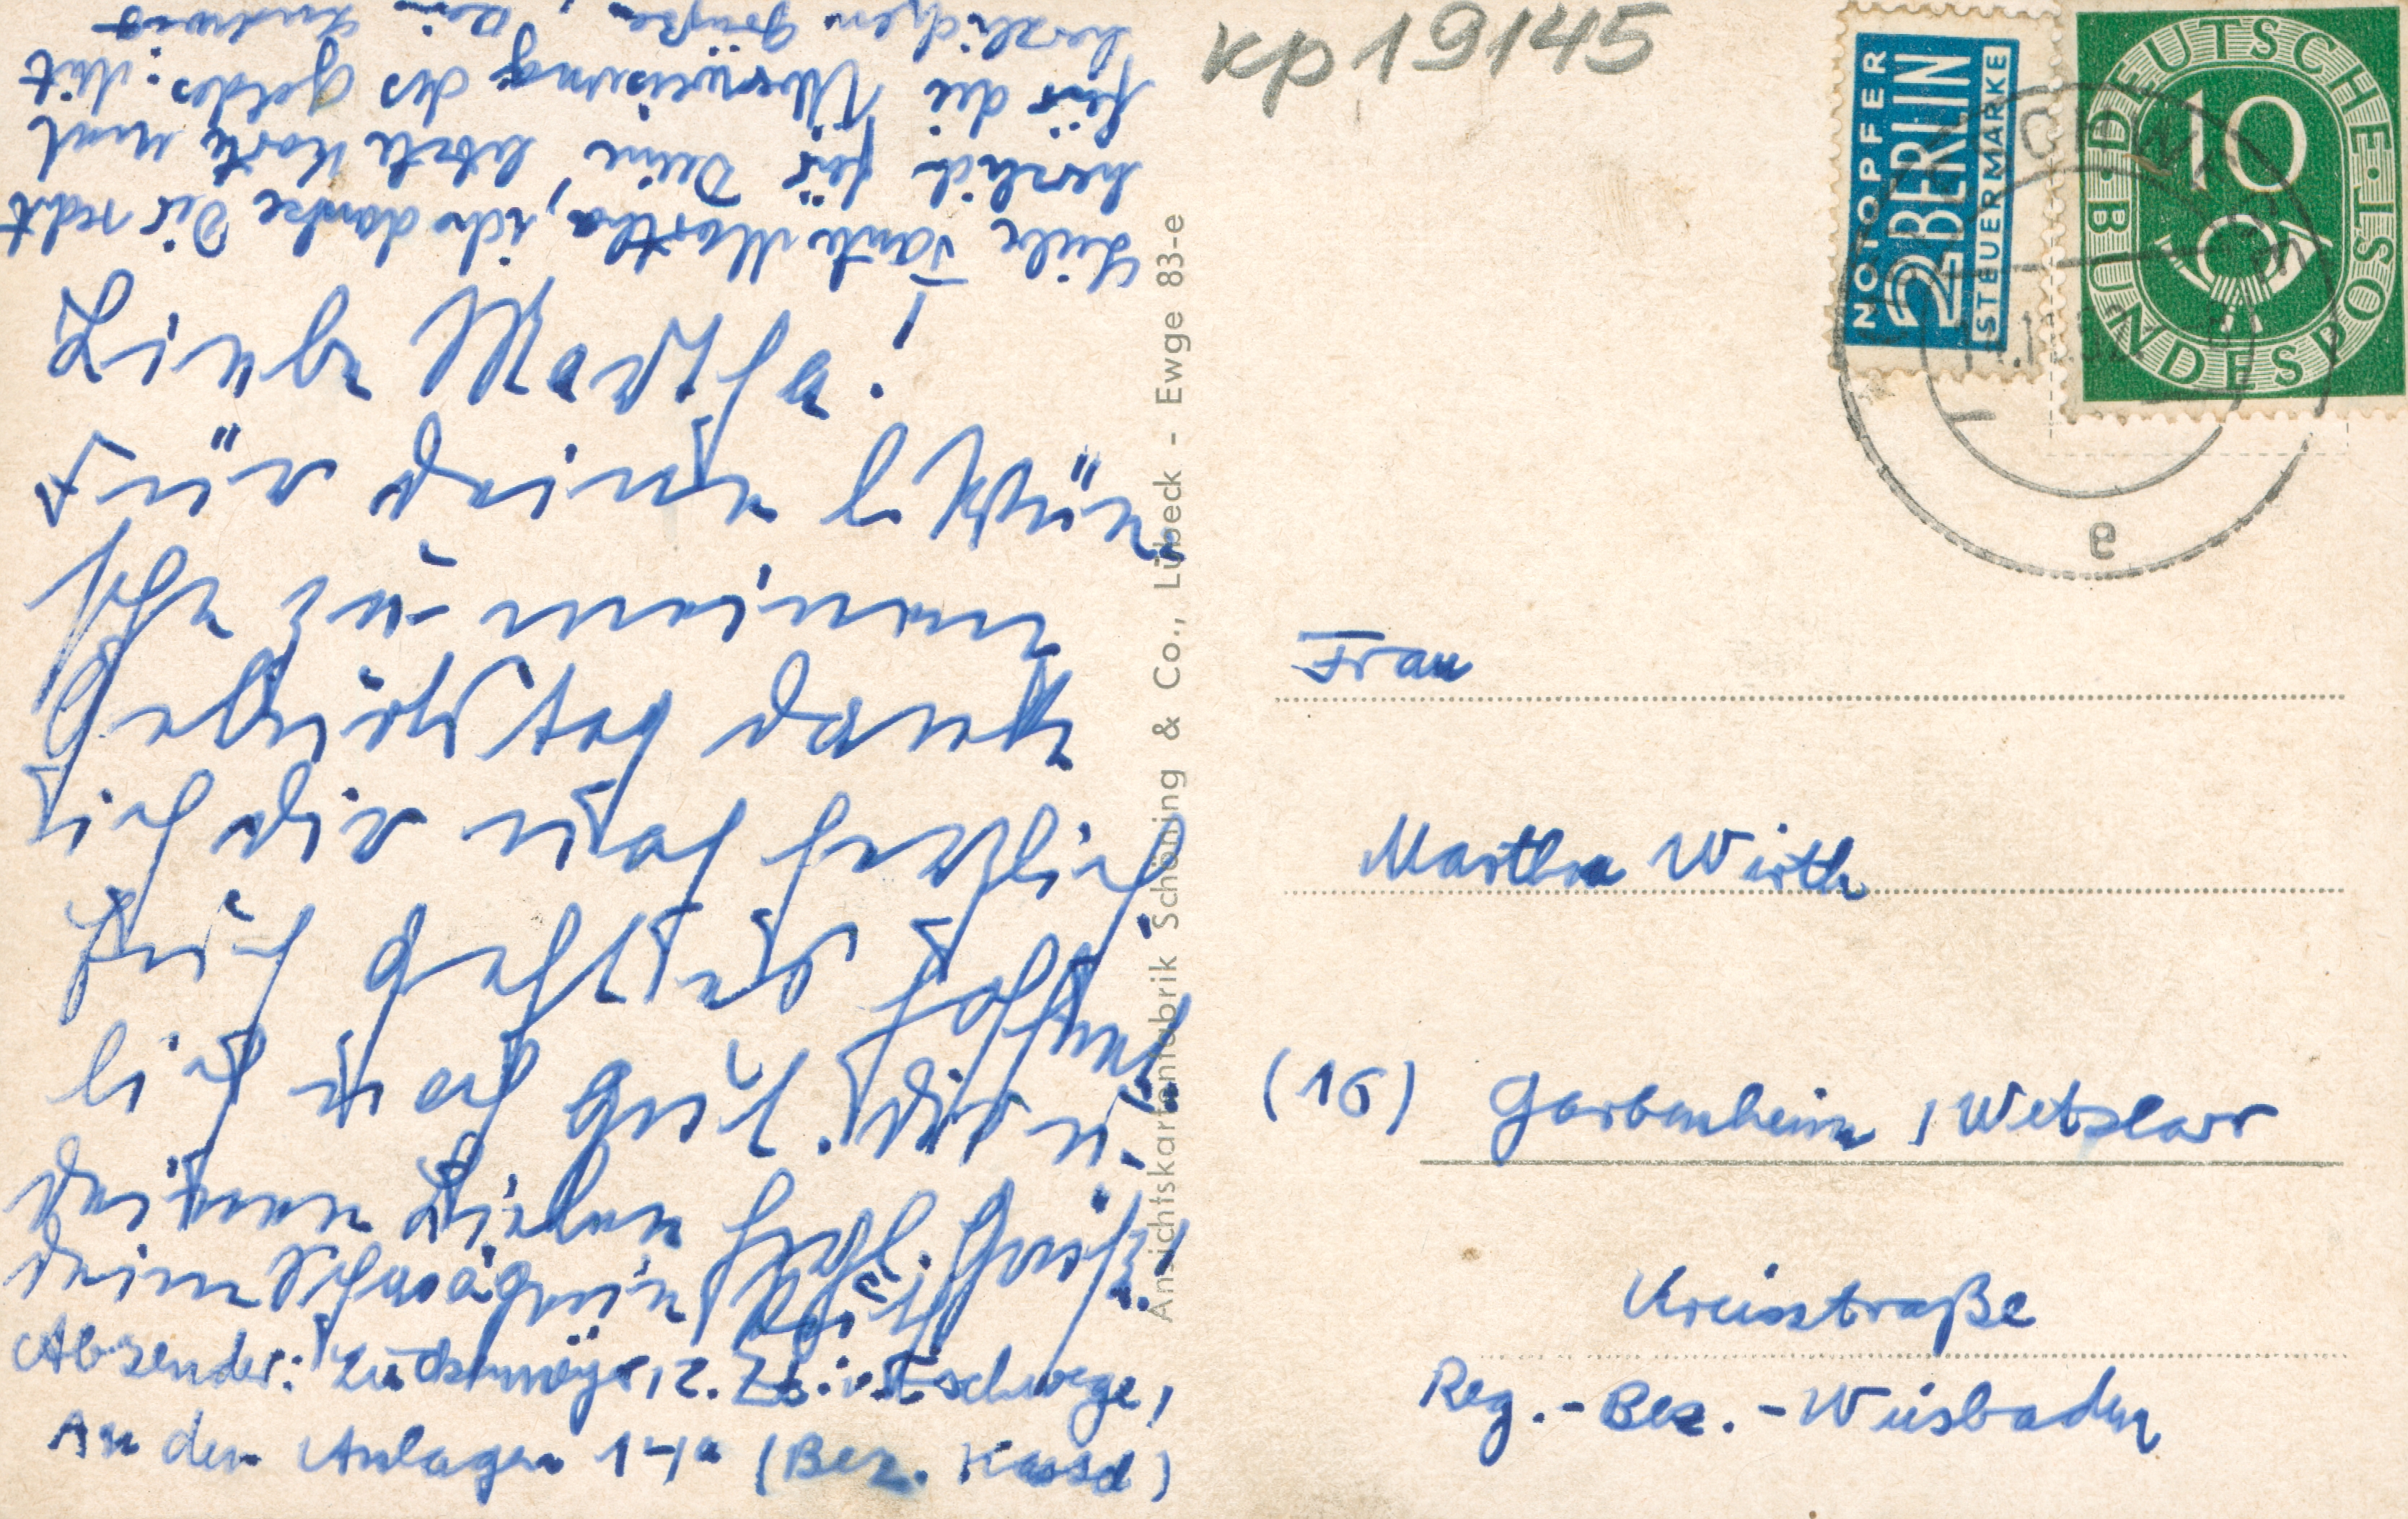 Liebe Martha!
Für deine
sche zu meinem
Geburtstag danke
ich dir herzlich.
Euch geht es hoffent
lich auch gut.
deinen Lieben herzl. Grüße
deine Schwägerin
Absender: Eschwege,
An den Anlagen 14a (Bez. Kassel)
Liebe Tante Martha, ich danke Dir recht
herzlich für Deine letzte Karte und
für die Überweisung des Geldes. Mit
herzlichen Grüßen, Dein Ludwig
Ansichtskartenfabrik Schöning & Co., Lübeck - Ewge 83-e
kp19145
NOTOPFER
2 BERLIN
STEUERMARKE
DEUTSCHE BUNDESPOST
10
ESCHWEGE
a
Frau
Martha Wirth
(16) Garbenheim / Wetzlar
Kreisstraße
Reg.-Bez.-Wiesbaden